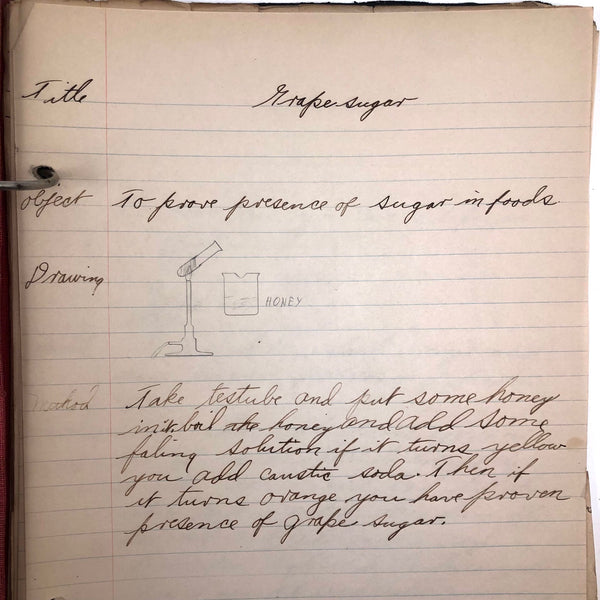 Title Grape sugar
object To prove presence of sugar in foods
Drawing
HONEY
Method Take testube and put some honey
in it boil the honey and add some
faling solution if it turns yellow
you add caustic soda. Then if
it turns orange you have proven
presence of grape sugar.